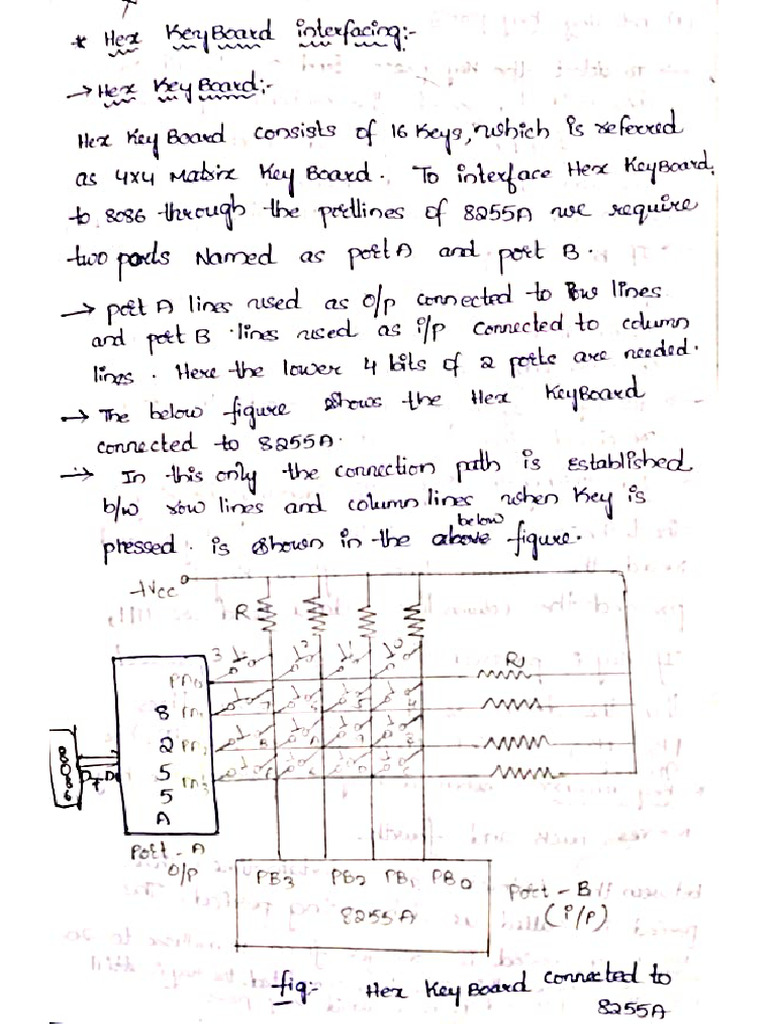 * Hex KeyBoard interfacing:-
→ Hex KeyBoard:-
Hex KeyBoard consists of 16 Keys, which is referred
as 4x4 Matrix KeyBoard. To interface Hex KeyBoard,
to 8086 through the portlines of 8255A we require
two ports Named as port A and port B.
→ port A lines used as o/p connected to row lines
and port B lines used as i/p connected to column
lines. Here the lower 4 bits of 2 ports are needed.
→ The below figure shows the Hex KeyBoard
connected to 8255A.
→ In this only the connection path is established
b/w row lines and column lines when Key is
pressed. is shown in the above below figure.
+Vcc
R
3 2 1 0
R
PA0
8 PA1
2 PA2
5 PA3
5
A
D7 D0
Port - A
O/P
PB3 PB2 PB1 PB0
8255A
Port - B
(i/p)
fig:- Hex KeyBoard connected to
8255A